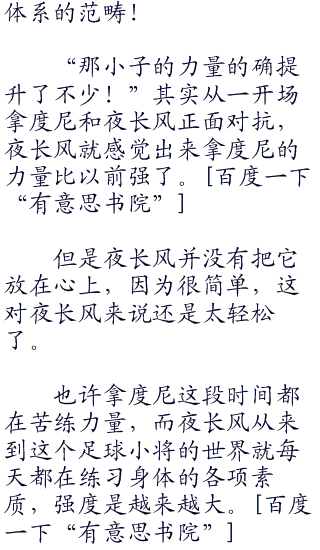 体系的范畴！
“那小子的力量的确提
升了不少！”其实从一开场
拿度尼和夜长风正面对抗，
夜长风就感觉出来拿度尼的
力量比以前强了。[百度一下
“有意思书院”]
但是夜长风并没有把它
放在心上，因为很简单，这
对夜长风来说还是太轻松
了。
也许拿度尼这段时间都
在苦练力量，而夜长风从来
到这个足球小将的世界就每
天都在练习身体的各项素
质，强度是越来越大。[百度
一下“有意思书院”]